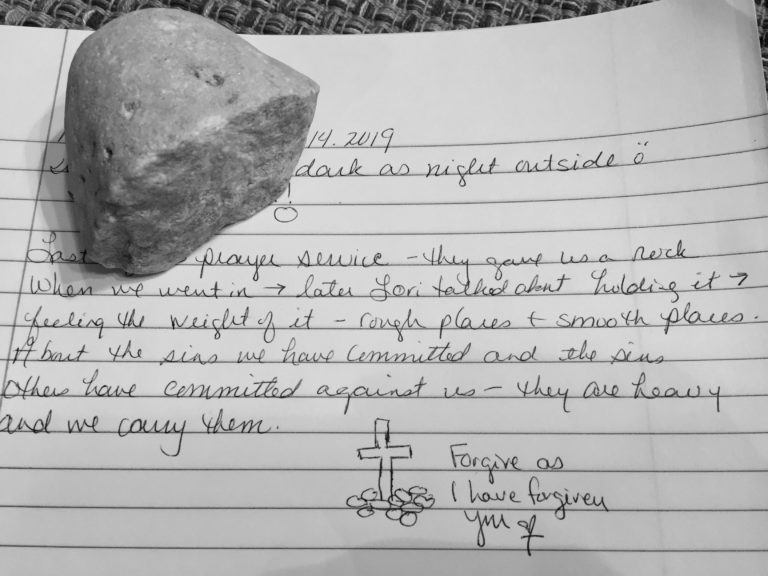 14.2019
dark as night outside
Last prayer service - they gave us a rock
When we went in → later Lori talked about holding it →
feeling the weight of it - rough places + smooth places.
About the sins we have committed and the sins
others have committed against us - they are heavy
and we carry them.
Forgive as
I have forgiven
you